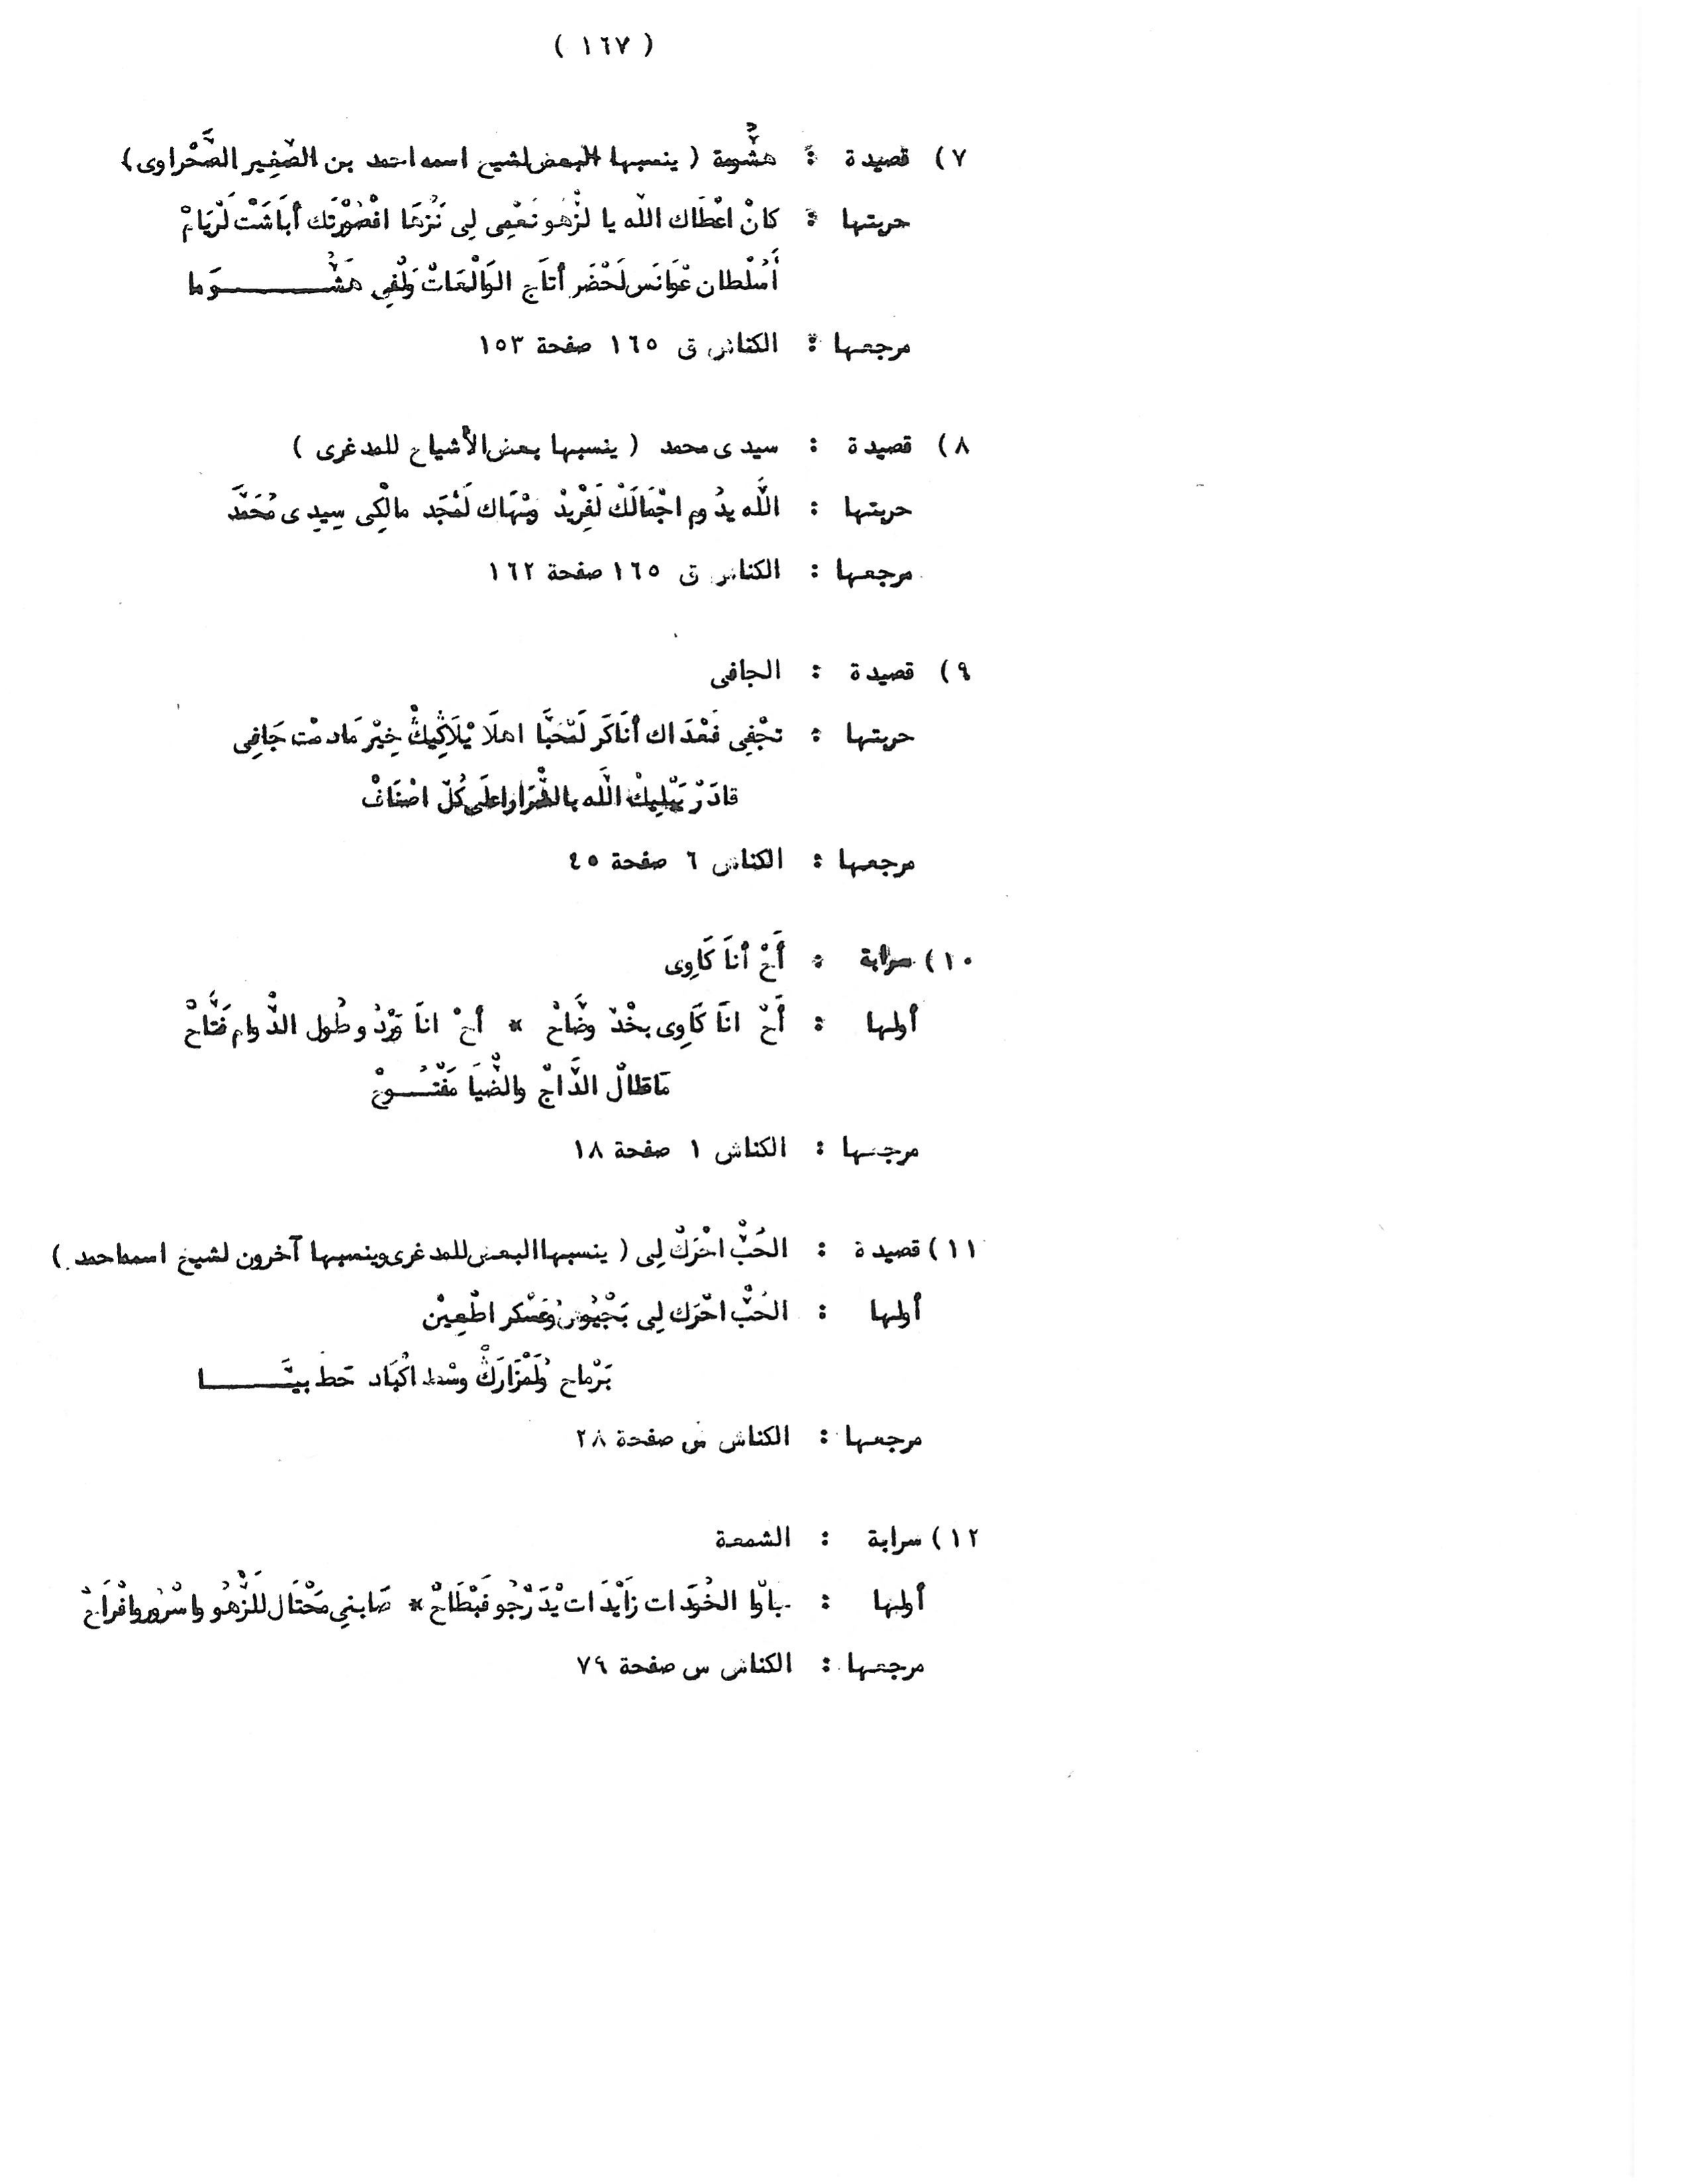 ( ١٦٧ )
٧) قصيدة : هشُّومة ( ينسبها البعض لشيخ اسمه احمد بن الصّغِير الصَّحْراوى)
حربتها : كانْ اعْطَاك الله يا لزْهُو نَعْمِى لِى نَزْهَا افْصُوْرْتَك أبَاشَتْ لَرْيَامْ
أَسُلْطان عْوَانَس لَحْضَر أتَاج الوَالْعَاتْ وَلْفِى هَشُّــــوَما
مرجعها : الكناش ق ١٦٥ صفحة ١٥٣
٨) قصيدة : سيدى محمد ( ينسبها بعض الأشياخ للمدغرى )
حربتها : اللَّه يدُوم اجْمَالَكْ لَفْرِيدْ وبْهَاك لَمْجَد مالْكِى سِيدِى مُحَمَّد
مرجعها : الكناش ق ١٦٥ صفحة ١٦٢
٩) قصيدة : الجافى
حربتها : تجْفِى فَعْدَاك أنَاكَر لَمْحَبَّا اهلَا يْلَاكِيكْ خِيْر مَادمْت جَافِى
قادَرْ يَبْلِيكْ اللَّه اعلَى كُلّ اصْنَافْ
مرجعها : الكناش ٦ صفحة ٤٥
١٠) سرابة : أَحْ أنَا كَاوِى
أولها : أَحْ انَا كَاوِى بخْدّ وضَّاحْ * أحْ انَا وَرْدُ وطُول الدّْوام فَتَّاحْ
مَاطَالْ الدَّاجْ والضّْيَا مَفْتُــوحْ
مرجعها : الكناش ١ صفحة ١٨
١١) قصيدة : الحُبّْ احْرَكْ لِى ( ينسبها البعض للمدغرى وينسبها آخرون لشيخ اسمه احمد )
أولها : الحُبّْ احْرَك لِى بَجْيُوشْ وُعَسْكر اطْعِيْن
بَرْماح وُلَمْزَارَكْ وسْط اكْبَاد حَط بيَّـــــا
مرجعها : الكناش س صفحة ٢٨
١٢) سرابة : الشمعة
أولها : باتوا الخُوَدَات زَايْدَات يْدَرْجُو فَبْطَاحْ * صَابنِي مَحْتَال للَزّْهُو واسْرُور وافْرَاحْ
مرجعها : الكناش س صفحة ٧٩